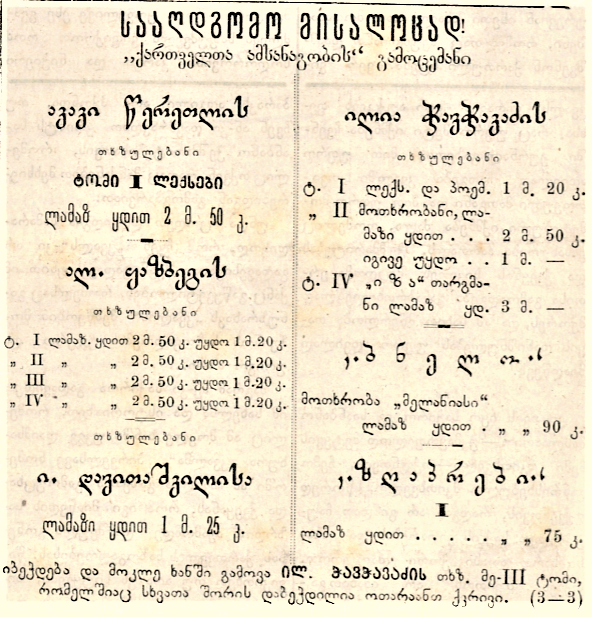 სააღდგომო მისალოცად!
„ქართველთა ამხანაგობის“ გამოცემანი
აკაკი წერეთლის
თხზულებანი
ტომი I ლექსები
ლამაზ ყდით 2 მ. 50 კ.
ალ. ყაზბეგის
თხზულებანი
ტ. I ლამაზ. ყდით 2 მ. 50 კ. უყდო 1 მ. 20 კ.
„ II „ „ 2 მ. 50 კ. უყდო 1 მ. 20 კ.
„ III „ „ 2 მ. 50 კ. უყდო 1 მ. 20 კ.
„ IV „ „ 2 მ. 50 კ. უყდო 1 მ. 20 კ.
თხზულებანი
ი. დავითაშვილისა
ლამაზი ყდით 1 მ. 25 კ.
ილია ჭავჭავაძის
თხზულებანი
ტ. I ლექს. და პოემ. 1 მ. 20 კ.
„ II მოთხრობანი, ლა-
მაზი ყდით . . . 2 მ. 50 კ.
იგივე უყდო . . 1 მ. —
ტ. IV „ი ზ ა“ თარგმა-
ნი ლამაზ ყდ. 3 მ. —
მოთხრობა „მელანიასი“
ლამაზ ყდით . „ „ 90 კ.
ზღაპრები
I
ლამაზ ყდით . . . . . „ „ 75 კ.
იბეჭდება და მოკლე ხანში გამოვა ილ. ჭავჭავაძის თხზ. მე-III ტომი,
რომელშიაც სხვათა შორის დაბეჭდილია ოთარაანთ ქვრივი. (3—3)